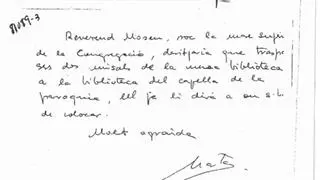 81089-3
Reverend Mossen, soc la mare superi
de la Congregació, desitjaria que traspas
ses dos missals de la meva biblioteca
a la biblioteca del capellà de la
parroquia, ell ja li dirà a on s.h.
de colocar.
Molt agraida